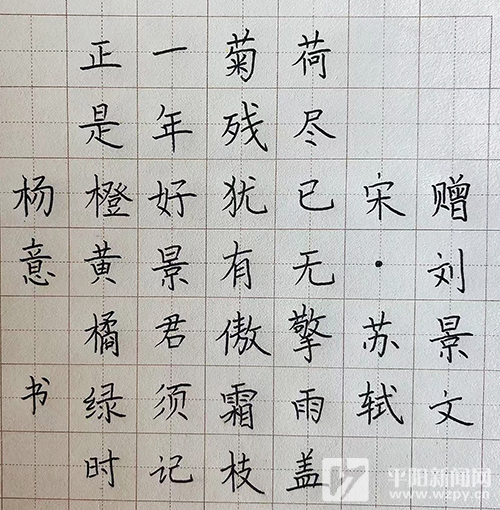 赠刘景文
宋·苏轼
荷尽已无擎雨盖
菊残犹有傲霜枝
一年好景君须记
正是橙黄橘绿时
杨意书
平阳新闻网
www.wzpy.cn